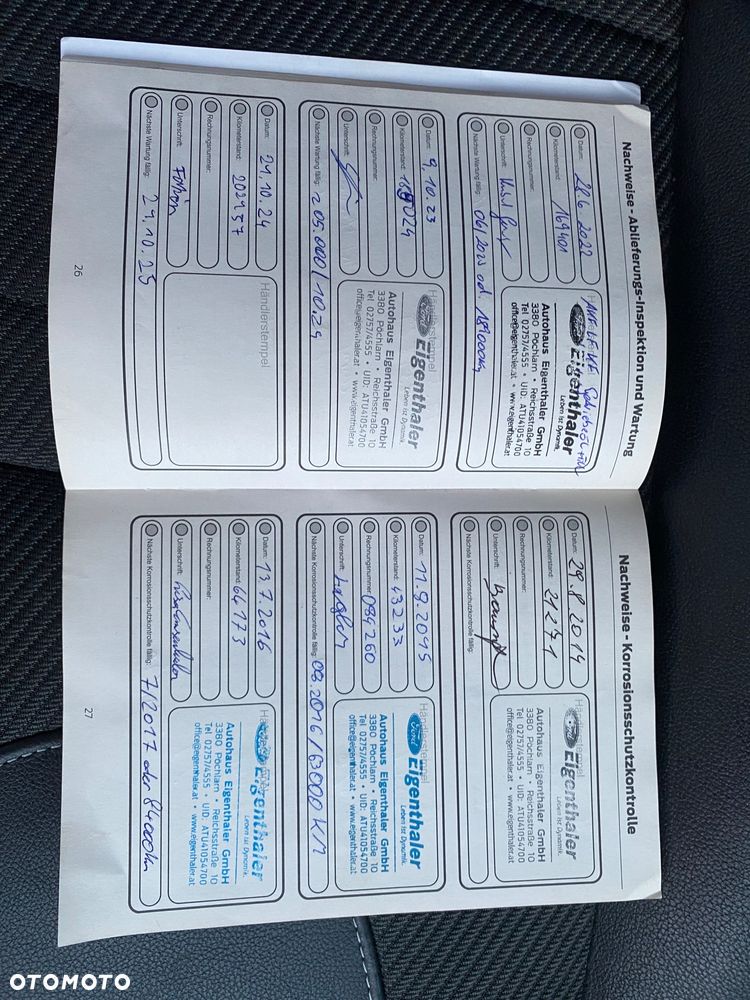 Nachweise - Ablieferungs-Inspektion und Wartung
Datum: 22.6.2022
Kilometerstand: 169401
Rechnungsnummer:
Unterschrift:
Nächste Wartung fällig: 06/2023 od. 189000km
Händlerstempel
Ford Eigenthaler
Leben ist Dynamik.
Autohaus Eigenthaler GmbH
3380 Pöchlarn • Reichsstraße 10
Tel 02757/4555 • UID: ATU41054700
office@eigenthaler.at • www.eigenthaler.at
Datum: 9.10.23
Kilometerstand:
Rechnungsnummer:
Unterschrift:
Nächste Wartung fällig: 205.000/10.24
Händlerstempel
Ford Eigenthaler
Leben ist Dynamik.
Autohaus Eigenthaler GmbH
3380 Pöchlarn • Reichsstraße 10
Tel 02757/4555 • UID: ATU41054700
office@eigenthaler.at • www.eigenthaler.at
Datum: 29.10.24
Kilometerstand: 202957
Rechnungsnummer:
Unterschrift:
Nächste Wartung fällig: 29.10.25
Händlerstempel
26
Nachweise - Korrosionsschutzkontrolle
Datum: 29.8.2014
Kilometerstand: 21271
Rechnungsnummer:
Unterschrift:
Nächste Korrosionsschutzkontrolle fällig:
Händlerstempel
Ford Eigenthaler
Leben ist Dynamik.
Autohaus Eigenthaler GmbH
3380 Pöchlarn • Reichsstraße 10
Tel 02757/4555 • UID: ATU41054700
office@eigenthaler.at • www.eigenthaler.at
Datum: 11.9.2015
Kilometerstand: 43233
Rechnungsnummer: 084260
Unterschrift:
Nächste Korrosionsschutzkontrolle fällig: 08.2016/63000 KM
Händlerstempel
Ford Eigenthaler
Leben ist Dynamik.
Autohaus Eigenthaler GmbH
3380 Pöchlarn • Reichsstraße 10
Tel 02757/4555 • UID: ATU41054700
office@eigenthaler.at • www.eigenthaler.at
Datum: 13.7.2016
Kilometerstand: 64173
Rechnungsnummer:
Unterschrift:
Nächste Korrosionsschutzkontrolle fällig: 7/2017 oder 84000km
Händlerstempel
Ford Eigenthaler
Leben ist Dynamik.
Autohaus Eigenthaler GmbH
3380 Pöchlarn • Reichsstraße 10
Tel 02757/4555 • UID: ATU41054700
office@eigenthaler.at • www.eigenthaler.at
27
OTOMOTO